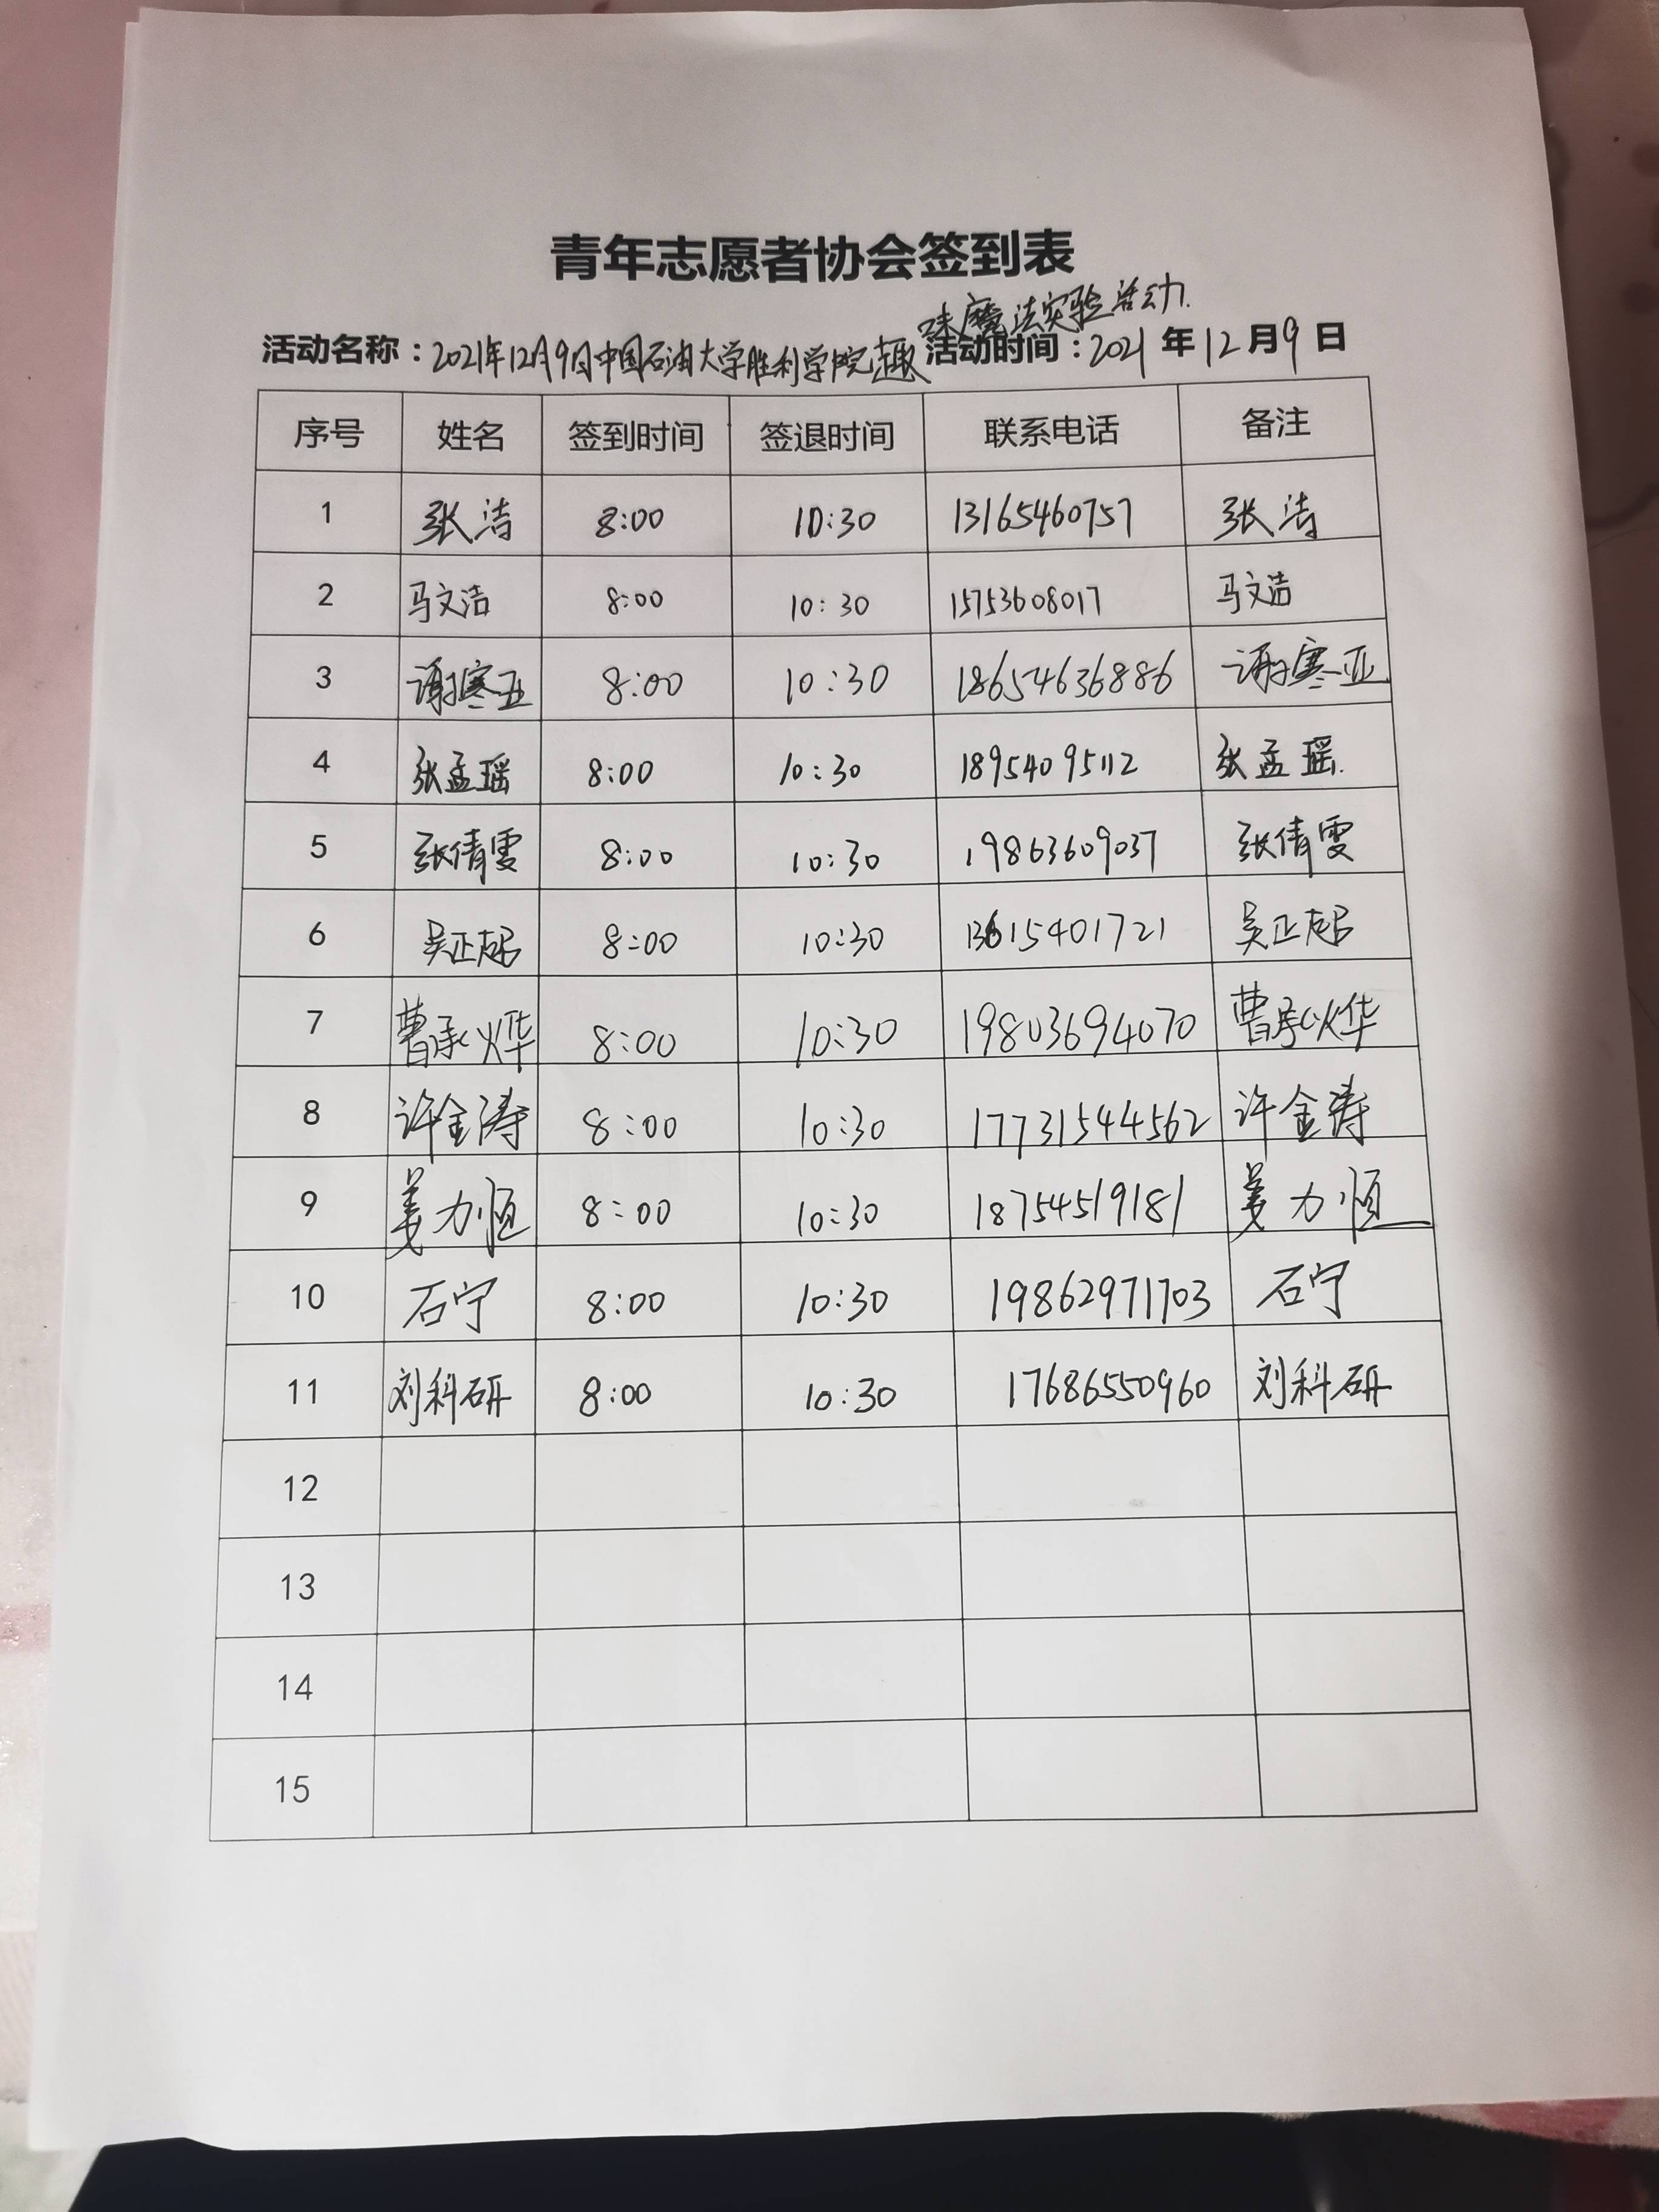 青年志愿者协会签到表
活动名称：2021年12月9日中国石油大学胜利学院趣味魔法实验活动. 活动时间：2021年12月9日
序号 姓名 签到时间 签退时间 联系电话 备注
1 张洁 8:00 10:30 13165460757 张洁
2 马文洁 8:00 10:30 15753608017 马文洁
3 谢寒亚 8:00 10:30 18654636886 谢寒亚
4 张孟瑶 8:00 10:30 18954095112 张孟瑶.
5 张倩雯 8:00 10:30 19863609037 张倩雯
6 吴正起 8:00 10:30 13615401721 吴正起
7 曹承烨 8:00 10:30 19803694070 曹承烨
8 许金涛 8:00 10:30 17731544562 许金涛
9 姜力恒 8:00 10:30 18754519181 姜力恒
10 石宁 8:00 10:30 19862971703 石宁
11 刘科研 8:00 10:30 17686550960 刘科研
12
13
14
15